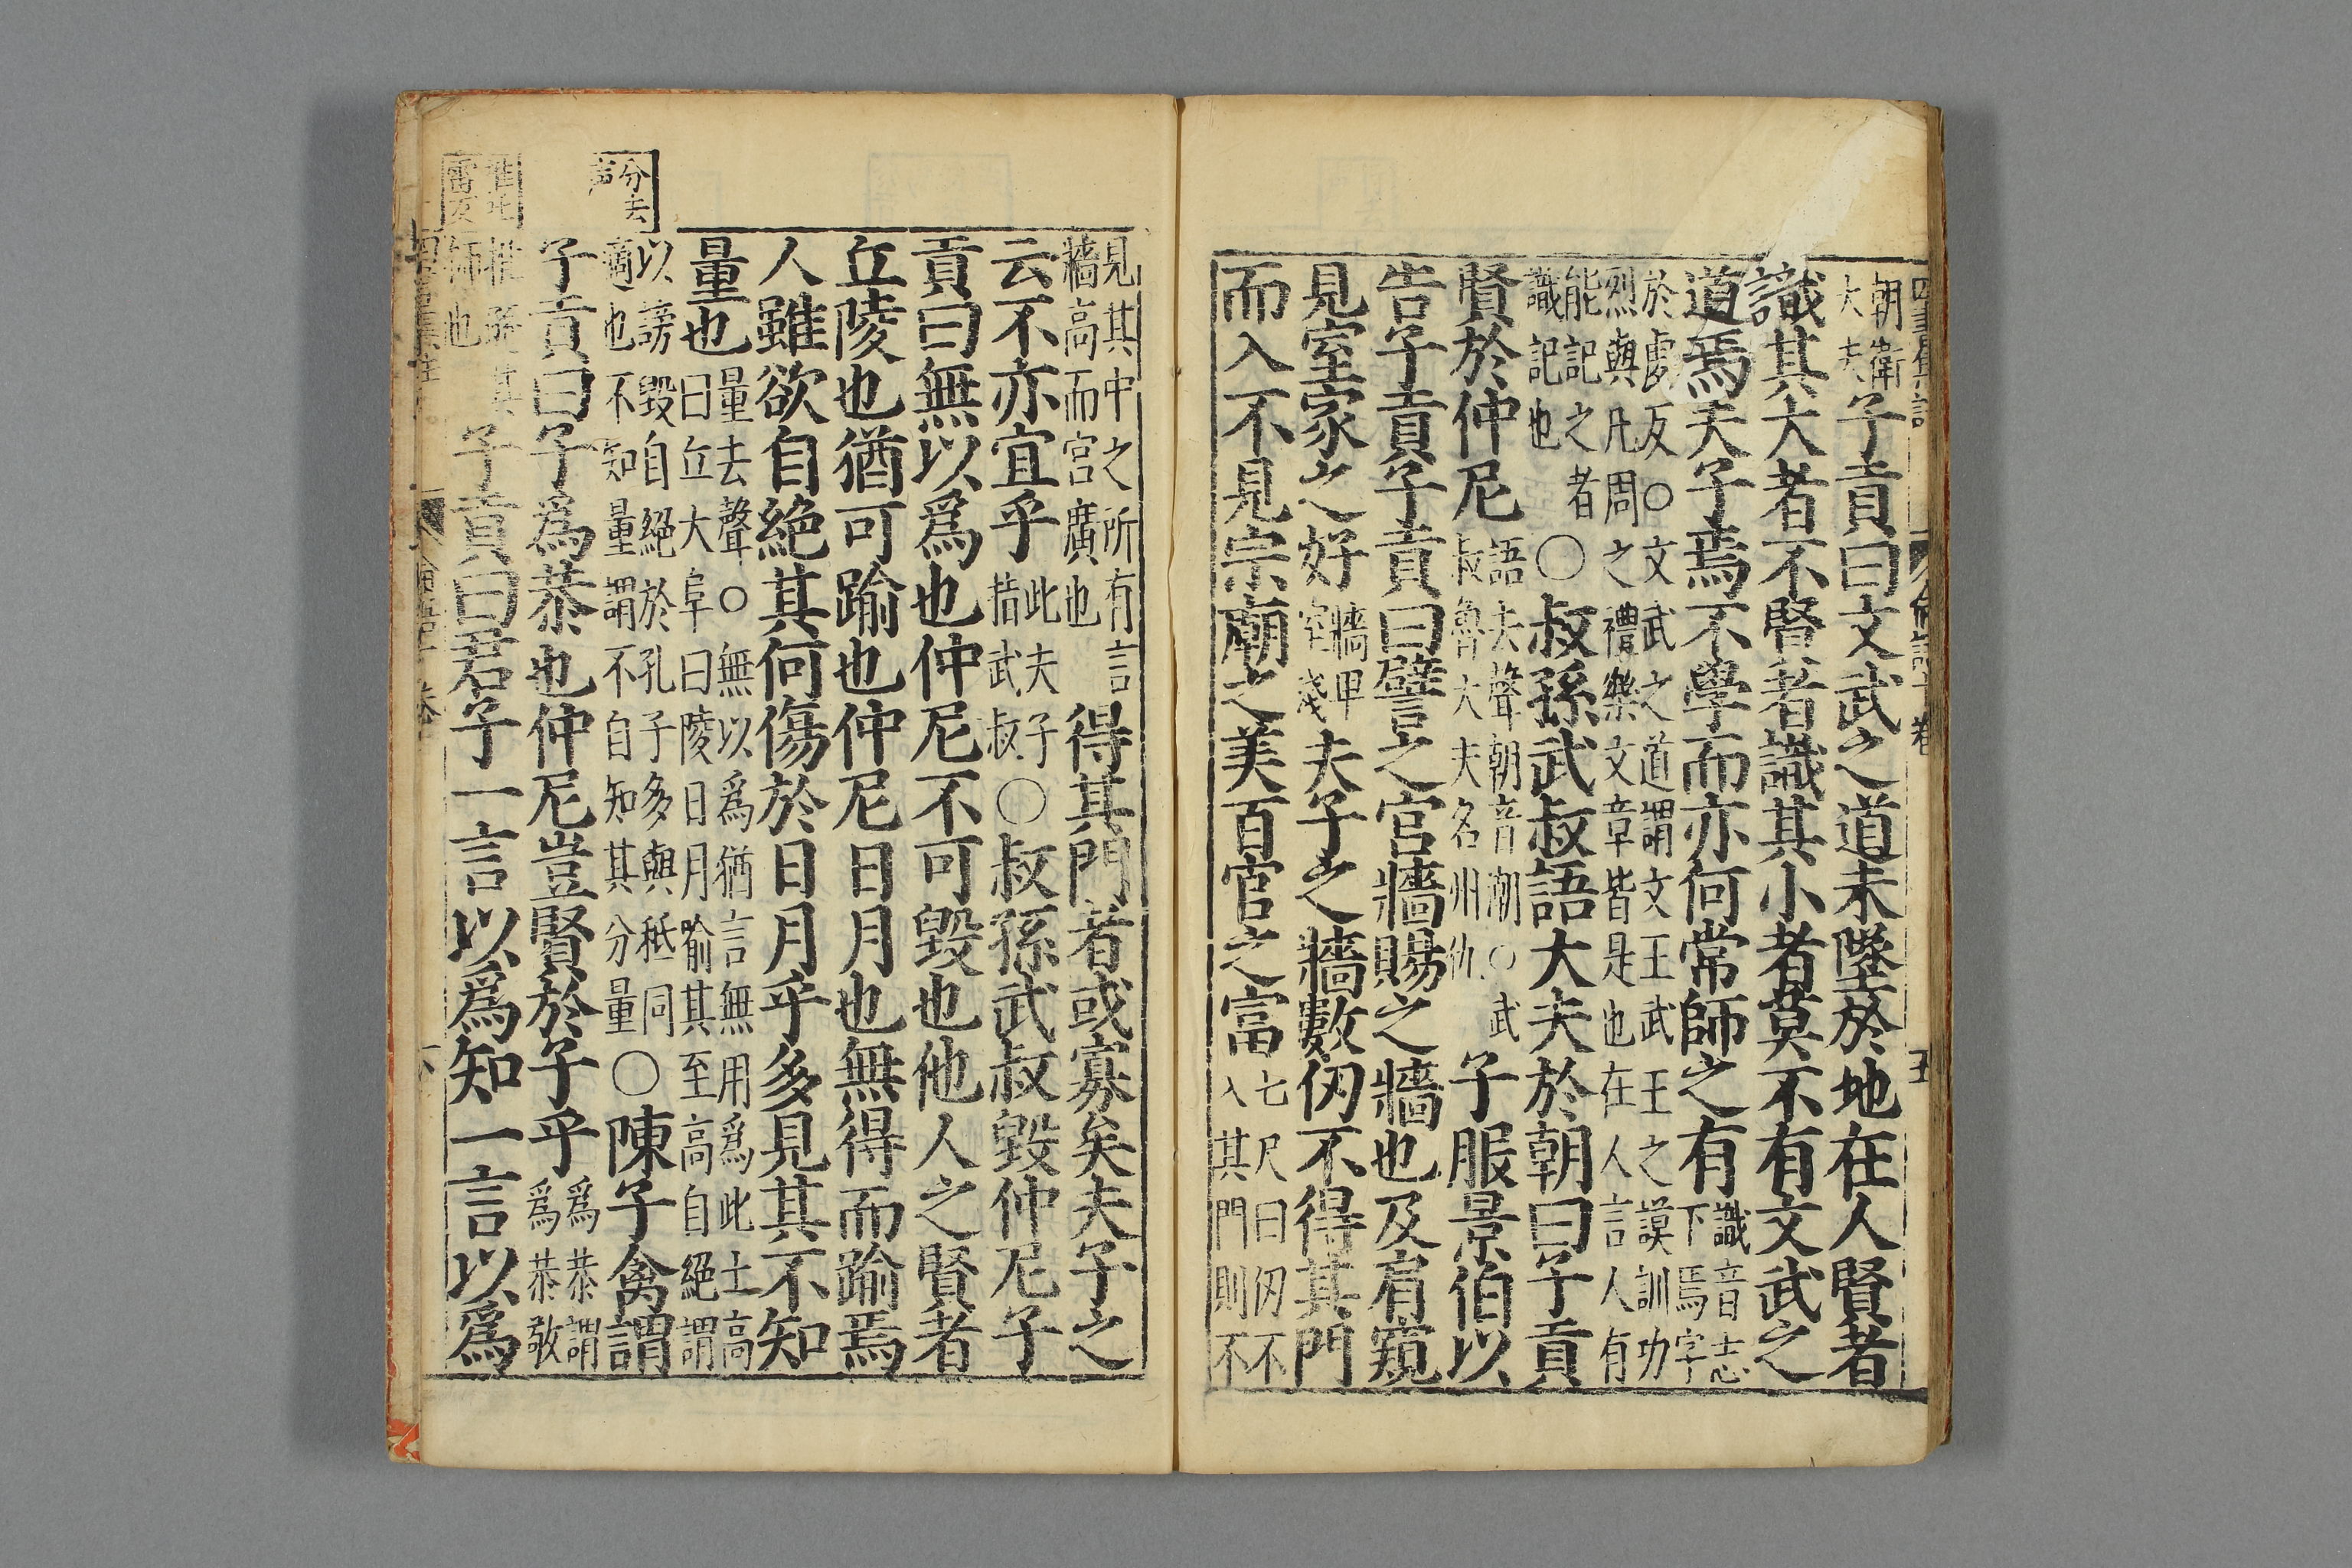 朝衛大夫子貢曰文武之道未墜於地在人賢者
識其大者不賢者識其小者莫不有文武之
道焉夫子焉不學而亦何常師之有識音志下焉字
於虔反○文武之道謂文王武王之謨訓功
烈與凡周之禮樂文章皆是也在人言人有
能記之者識記也○叔孫武叔語大夫於朝曰子貢
賢於仲尼語去聲朝音潮○武叔魯大夫名州仇子服景伯以
告子貢子貢曰譬之宮牆賜之牆也及肩窺
見室家之好牆卑室淺夫子之牆數仞不得其門
而入不見宗廟之美百官之富七尺曰仞不入其門則不
見其中之所有言牆高而宮廣也得其門者或寡矣夫子之
云不亦宜乎此夫子指武叔○叔孫武叔毀仲尼子
貢曰無以爲也仲尼不可毀也他人之賢者
丘陵也猶可踰也仲尼日月也無得而踰焉
人雖欲自絕其何傷於日月乎多見其不知
量也量去聲○無以爲猶言無用爲此土高曰丘大阜曰陵日月喻其至高自絕謂
以謗毀自絕於孔子多與秖同適也不知量謂不自知其分量○陳子禽謂
子貢曰子爲恭也仲尼豈賢於子乎爲恭謂爲恭敬
推遜其師也子貢曰君子一言以爲知一言以爲
分去声